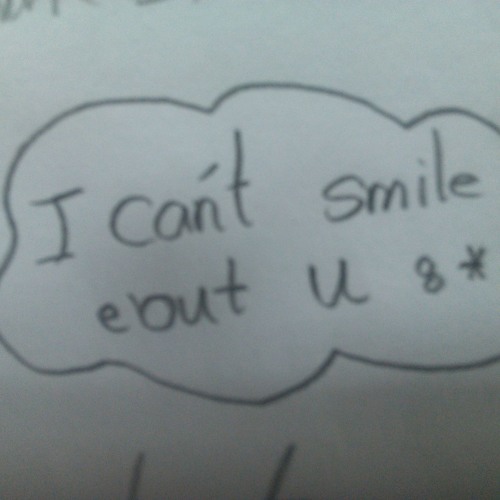 I can't smile
eout u 8*